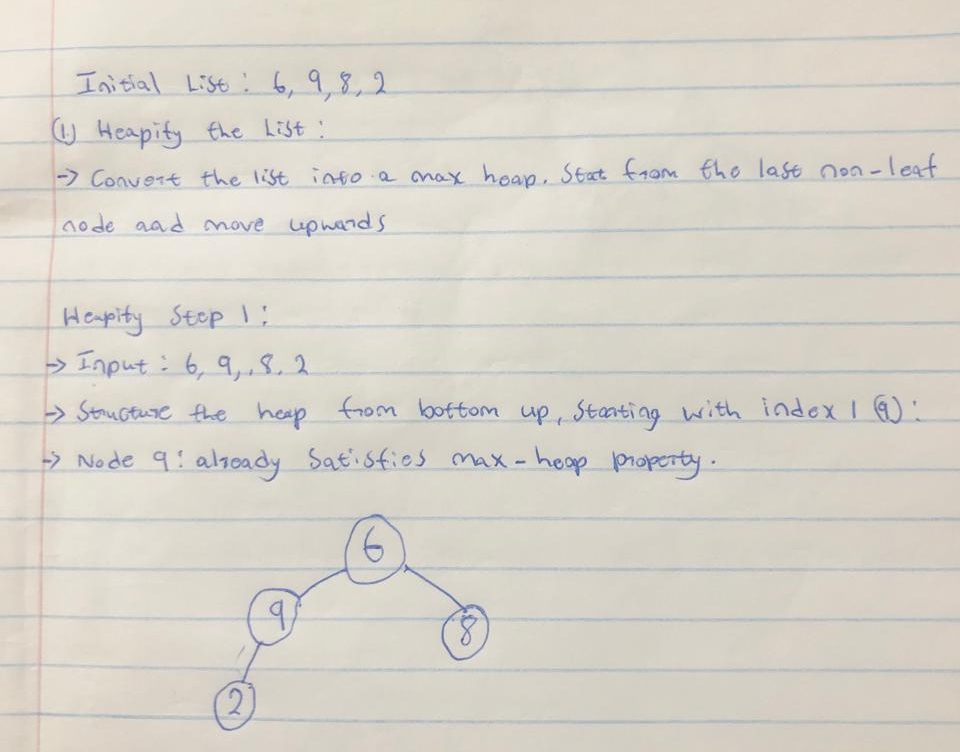 Initial List : 6, 9, 8, 2
(1) Heapify the List :
→ Convert the list into a max heap. Stat from the last non-leaf
node and move upwards
Heapify Step 1 :
→ Input : 6, 9, , 8, 2
→ Structure the heap from bottom up, starting with index 1 (9) :
→ Node 9 : already satisfies max-heap property.
6
9
8
2